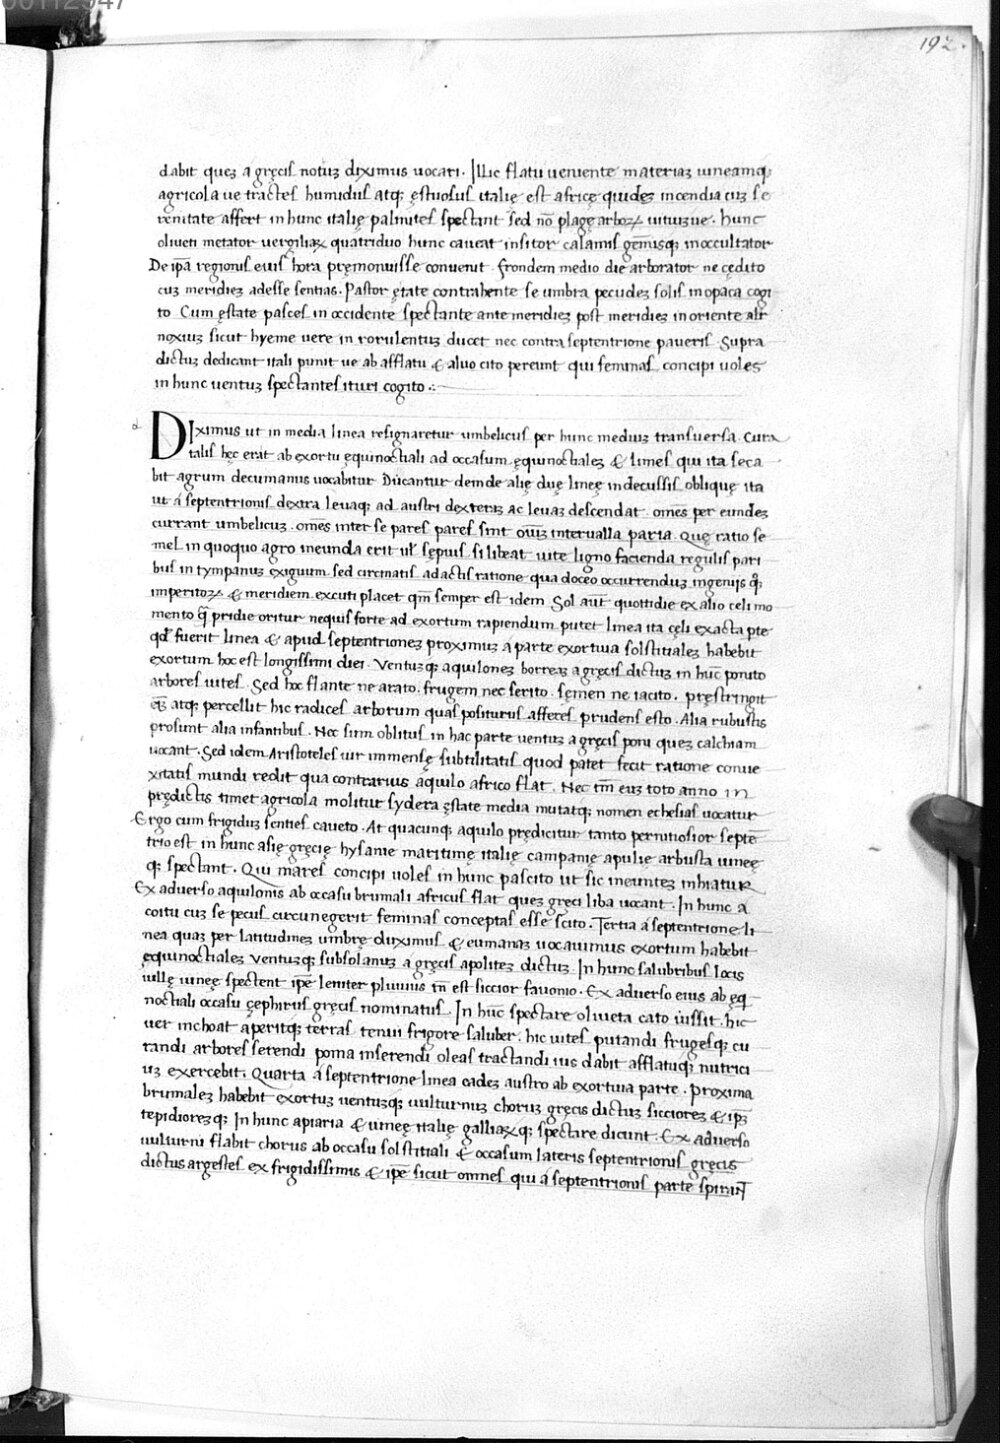 00112547
192.
dabit queʒ a gręcis notuʒ diximus uocari. Illic flatu ueniente materiaʒ uineamqʒ
agricola ue tractes humidus atqʒ ęstuosus italię est africę quideʒ incendia cuʒ se
renitate affert in hunc italię palmites spectant sed nō plagę arboꝝ uituʒue. hunc
oliueti metator uergiliaꝝ quatriduo hunc caueat insitor calamis gēmisqʒ inoccultator
De ipā regionis eius hora pręmonuisse conuenit. frondem medio die arborator ne cędito
cuʒ meridieʒ adesse sentias. Pastor ętate contrahente se umbra pecudeʒ solis in opaca cogi
to Cum ęstate pasces in occidente spectante ante meridieʒ post meridieʒ in oriente alr̄
noxiuʒ sicut hyeme uere in rorulentuʒ ducet nec contra septentrione paueris. Supra
dictuʒ dedicant itali punit ue ab afflatu & aluo cito pereunt qui feminas concipi uoles
in hunc uentuʒ spectantes ituri cogito :
d
DIximus ut in media linea resignaretur umbelicus per hunc mediuʒ transuersa. Cura
talis hęc erit ab exortu ęquinoctiali ad occasum ęquinoctialeʒ & limes qui ita seca
bit agrum decumanus uocabitur Ducantur deinde alię duę lineę in decussis oblique ita
ut á septentrionis dextra leuaqʒ ad austri dexteraʒ ac leuaʒ descendat. omēs per eundeʒ
currant umbelicuʒ. omēs inter se pares pares sint oūiʒ interualla paria. Quę ratio se
mel in quoquo agro ineunda erit ul' sępius si libeat uite ligno facienda regulis pari
bus in tympanuʒ exiguum sed circinatis adactis ratione qua doceo occurrenduʒ ingenijs qʒ
imperitoꝝ & meridiem excuti placet qm̄ semper est idem Sol aut̄ quottidie ex alio celi mo
mento q̄ pridie oritur nequis forte ad exortum rapiendum putet linea ita cęli exacta pte
qd' fuerit linea & apud septentrioneʒ proximuʒ a parte exortiua solstitialeʒ habebit
exortum hoc est longissimi diei. Ventuʒqʒ aquiloneʒ borreaʒ a gręcis dictuʒ in huc̄ ponito
arbores uites. Sed hoc flante ne arato. frugem nec serito. sęmen ne iacito. pręstringit
eʒ atqʒ percellit hic radices arborum quas positurus afferes prudens esto. Alia rubustis
prosunt alia infantibus. Nec sum oblitus in hac parte uentuʒ a gręcis poni queʒ calchiam
uocant. Sed idem Aristoteles uir immensę subtilitatis quod patet fecit ratione conue
xitatis mundi redit qua contrarius aquilo africo flat. Nec tm̄ euʒ toto anno in
prędictis timet agricola molitur sydera ęstate media mutatqʒ nomen echesias uocatur
Ergo cum frigiduʒ senties caueto. At quacunqʒ aquilo prędicitur tanto pernitiosior septē
trio est in hunc asię gręcię hysanie maritimę italię campanię apulię arbusta uineę
qʒ spectant. Qui mares concipi uoles in hunc pascito ut sic ineunteʒ inhiatur
Ex aduerso aquilonis ab occasu brumali africus flat queʒ greci liba uocant. In hunc a
coitu cuʒ se pecus circunegerit feminas conceptas esse scito. Tertia á septentrione li
nea quaʒ per latitudineʒ umbrę duximus & eumanaʒ uocauimus exortum habebit
ęquinoctialeʒ ventuʒqʒ subsolanuʒ a gręcis apoliteʒ dictuʒ. In hunc salubribus locis
uillę uineę spectent ipē leniter pluuius tn̄ est siccior fauonio. Ex aduerso eius ab ęq̄
noctiali occasu çephirus gręcis nominatus. In huc̄ spectare oliueta cato iussit. hic
uer inchoat aperitqʒ terras tenui frigore saluber. hic uites putandi frugesqʒ cu
randi arbores serendi poma inserendi oleas tractandi ius dabit afflatuqʒ nutrici
uʒ exercebit. Quarta á septentrione linea cadeʒ austro ab exortiua parte. proxima
brumaleʒ habebit exortuʒ uentuʒqʒ uulturniʒ choruʒ gręcis dictuʒ siccioreʒ & ipʒ
tepidioreʒqʒ In hunc apiaria & uineę italię galliaꝝqʒ spectare dicunt. Ex aduerso
uulturni flabit chorus ab occasu solstitiali & occasum lateris septentrionis gręcis
dictus argestes ex frigidissimis & ipē sicut omnes qui á septentrionis parte spirāt